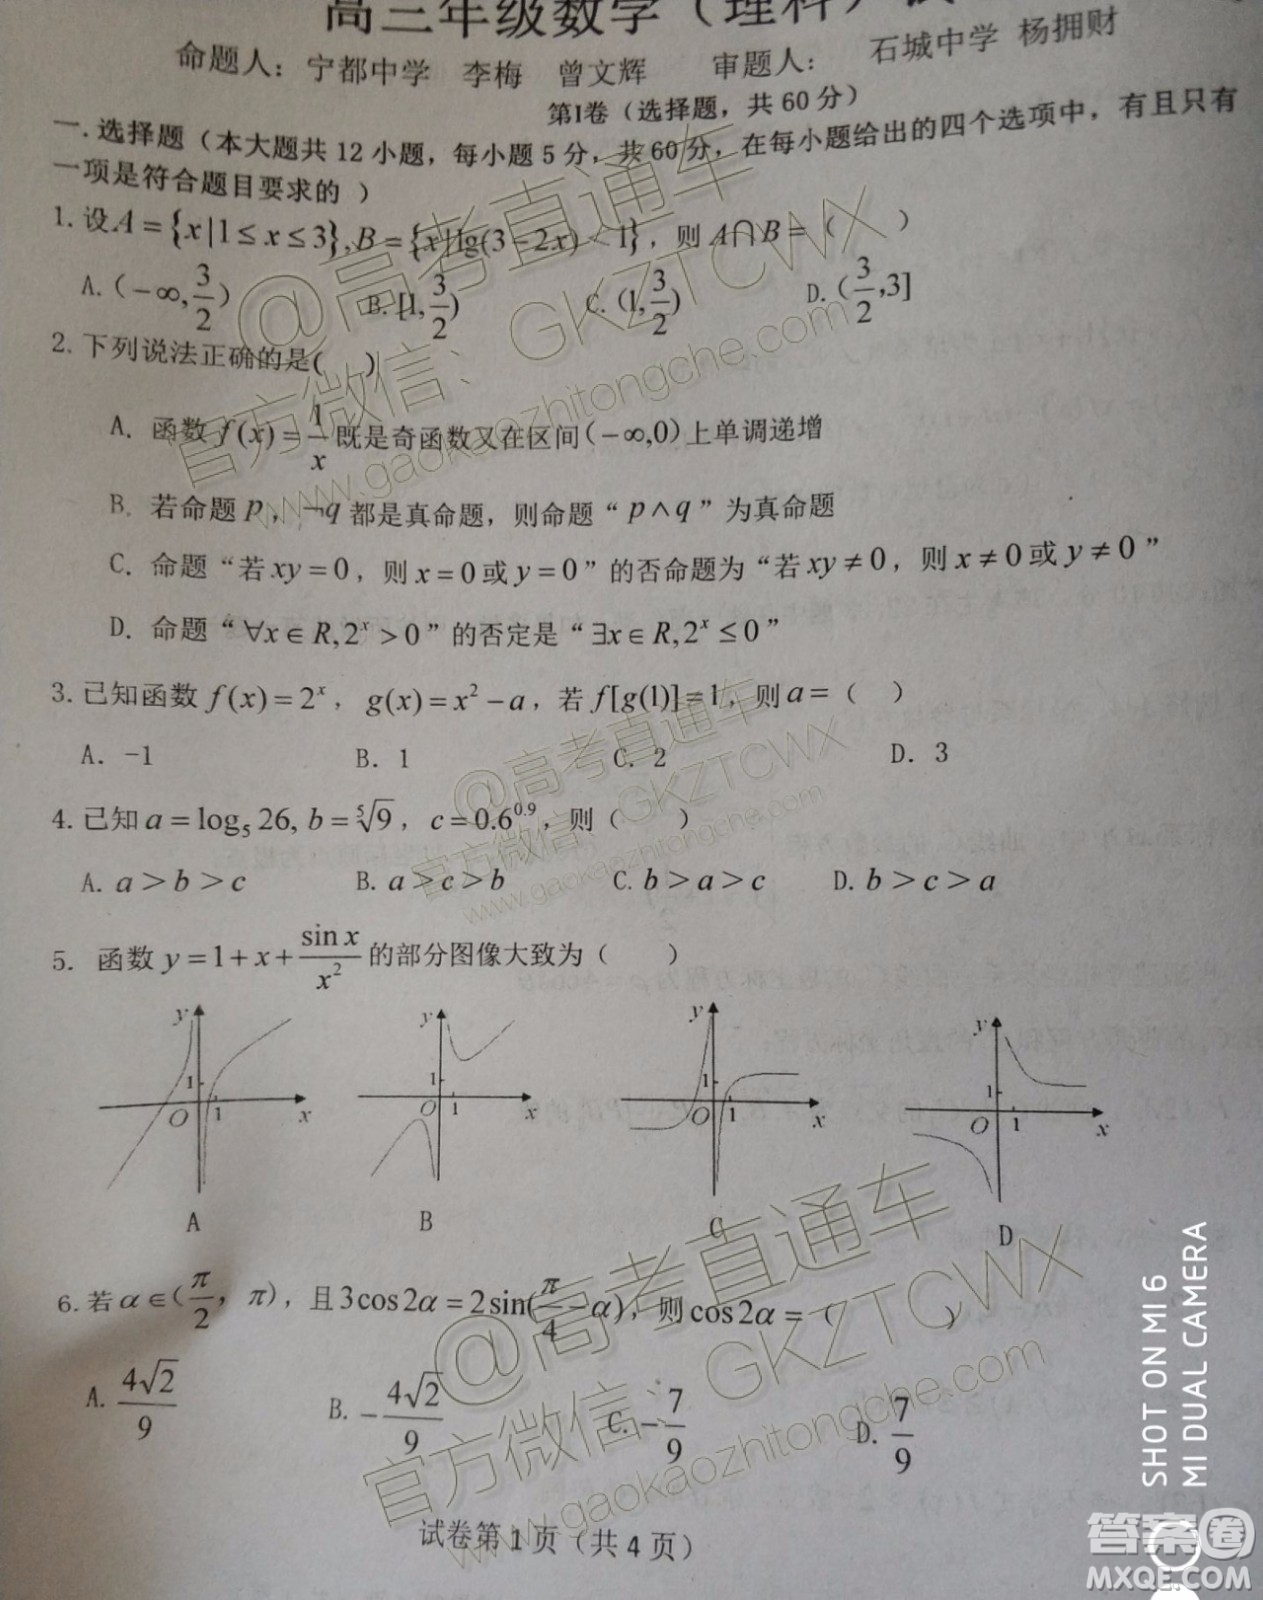 高三年级数学（理科）试
命题人：宁都中学 李梅 曾文辉 审题人： 石城中学 杨拥财
第Ⅰ卷（选择题，共60分）
一.选择题（本大题共12小题，每小题5分，共60分，在每小题给出的四个选项中，有且只有
一项是符合题目要求的 ）
1.设A={x|1≤x≤3},B={x|lg(3-2x)<1}，则A∩B=（ ）
A.(-∞,3/2) B.[1,3/2) C.(1,3/2) D.(3/2,3]
2.下列说法正确的是( )
A. 函数 f(x)=1/x 既是奇函数又在区间(-∞,0)上单调递增
B. 若命题 p，¬q 都是真命题，则命题“ p∧q ”为真命题
C. 命题“若 xy=0，则 x=0或 y=0”的否命题为“若 xy≠0，则 x≠0或 y≠0 ”
D. 命题“ ∀x∈R,2^x>0”的否定是“∃x∈R,2^x≤0”
3.已知函数 f(x)=2^x，g(x)=x^2-a，若 f[g(1)]=1，则a=（ ）
A. -1 B. 1 C. 2 D. 3
4.已知a=log_5 26, b=⁵√9，c=0.6^0.9，则（ ）
A. a>b>c B. a>c>b C. b>a>c D. b>c>a
5. 函数 y=1+x+sin x/x^2 的部分图像大致为（ ）
y 1 O 1 x
y 1 O 1 x
y 1 O 1 x
y 1 O 1 x
A B C D
6.若α∈(π/2，π)，且3cos2α=2sin(π/4-α)，则cos2α=（ ）
A. 4√2/9 B. -4√2/9 C. -7/9 D. 7/9
试卷第1页（共4页）
@高考直通车
官方微信、GKZTCWX
www.gaokaozhitongche.com
@高考直通车
官方微信、GKZTCWX
www.gaokaozhitongche.com
@高考直通车
官方微信、GKZTCWX
www.gaokaozhitongche.com
SHOT ON MI 6
MI DUAL CAMERA
答案圈
MXQE.COM